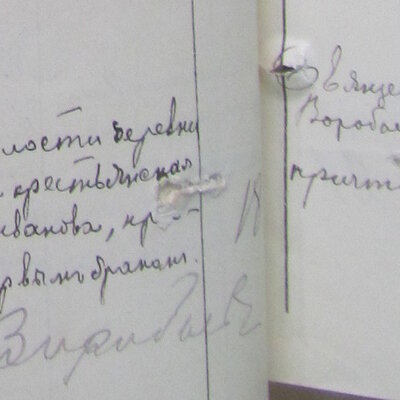 лости деревни
крестьянская
иванова, пр
ервымъ бракомъ.
Воробьевъ
Священ
Воробье
причт